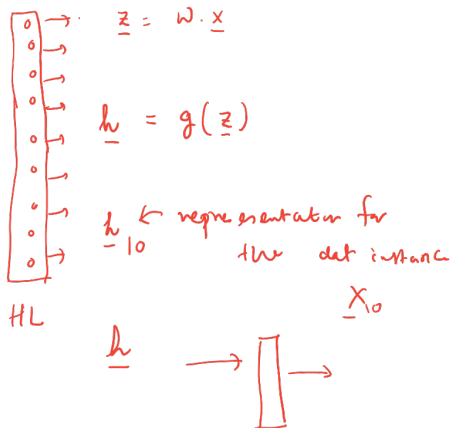 z = W . x
h = g(z)
h10 ← representation for
the dat instance
X10
HL
h